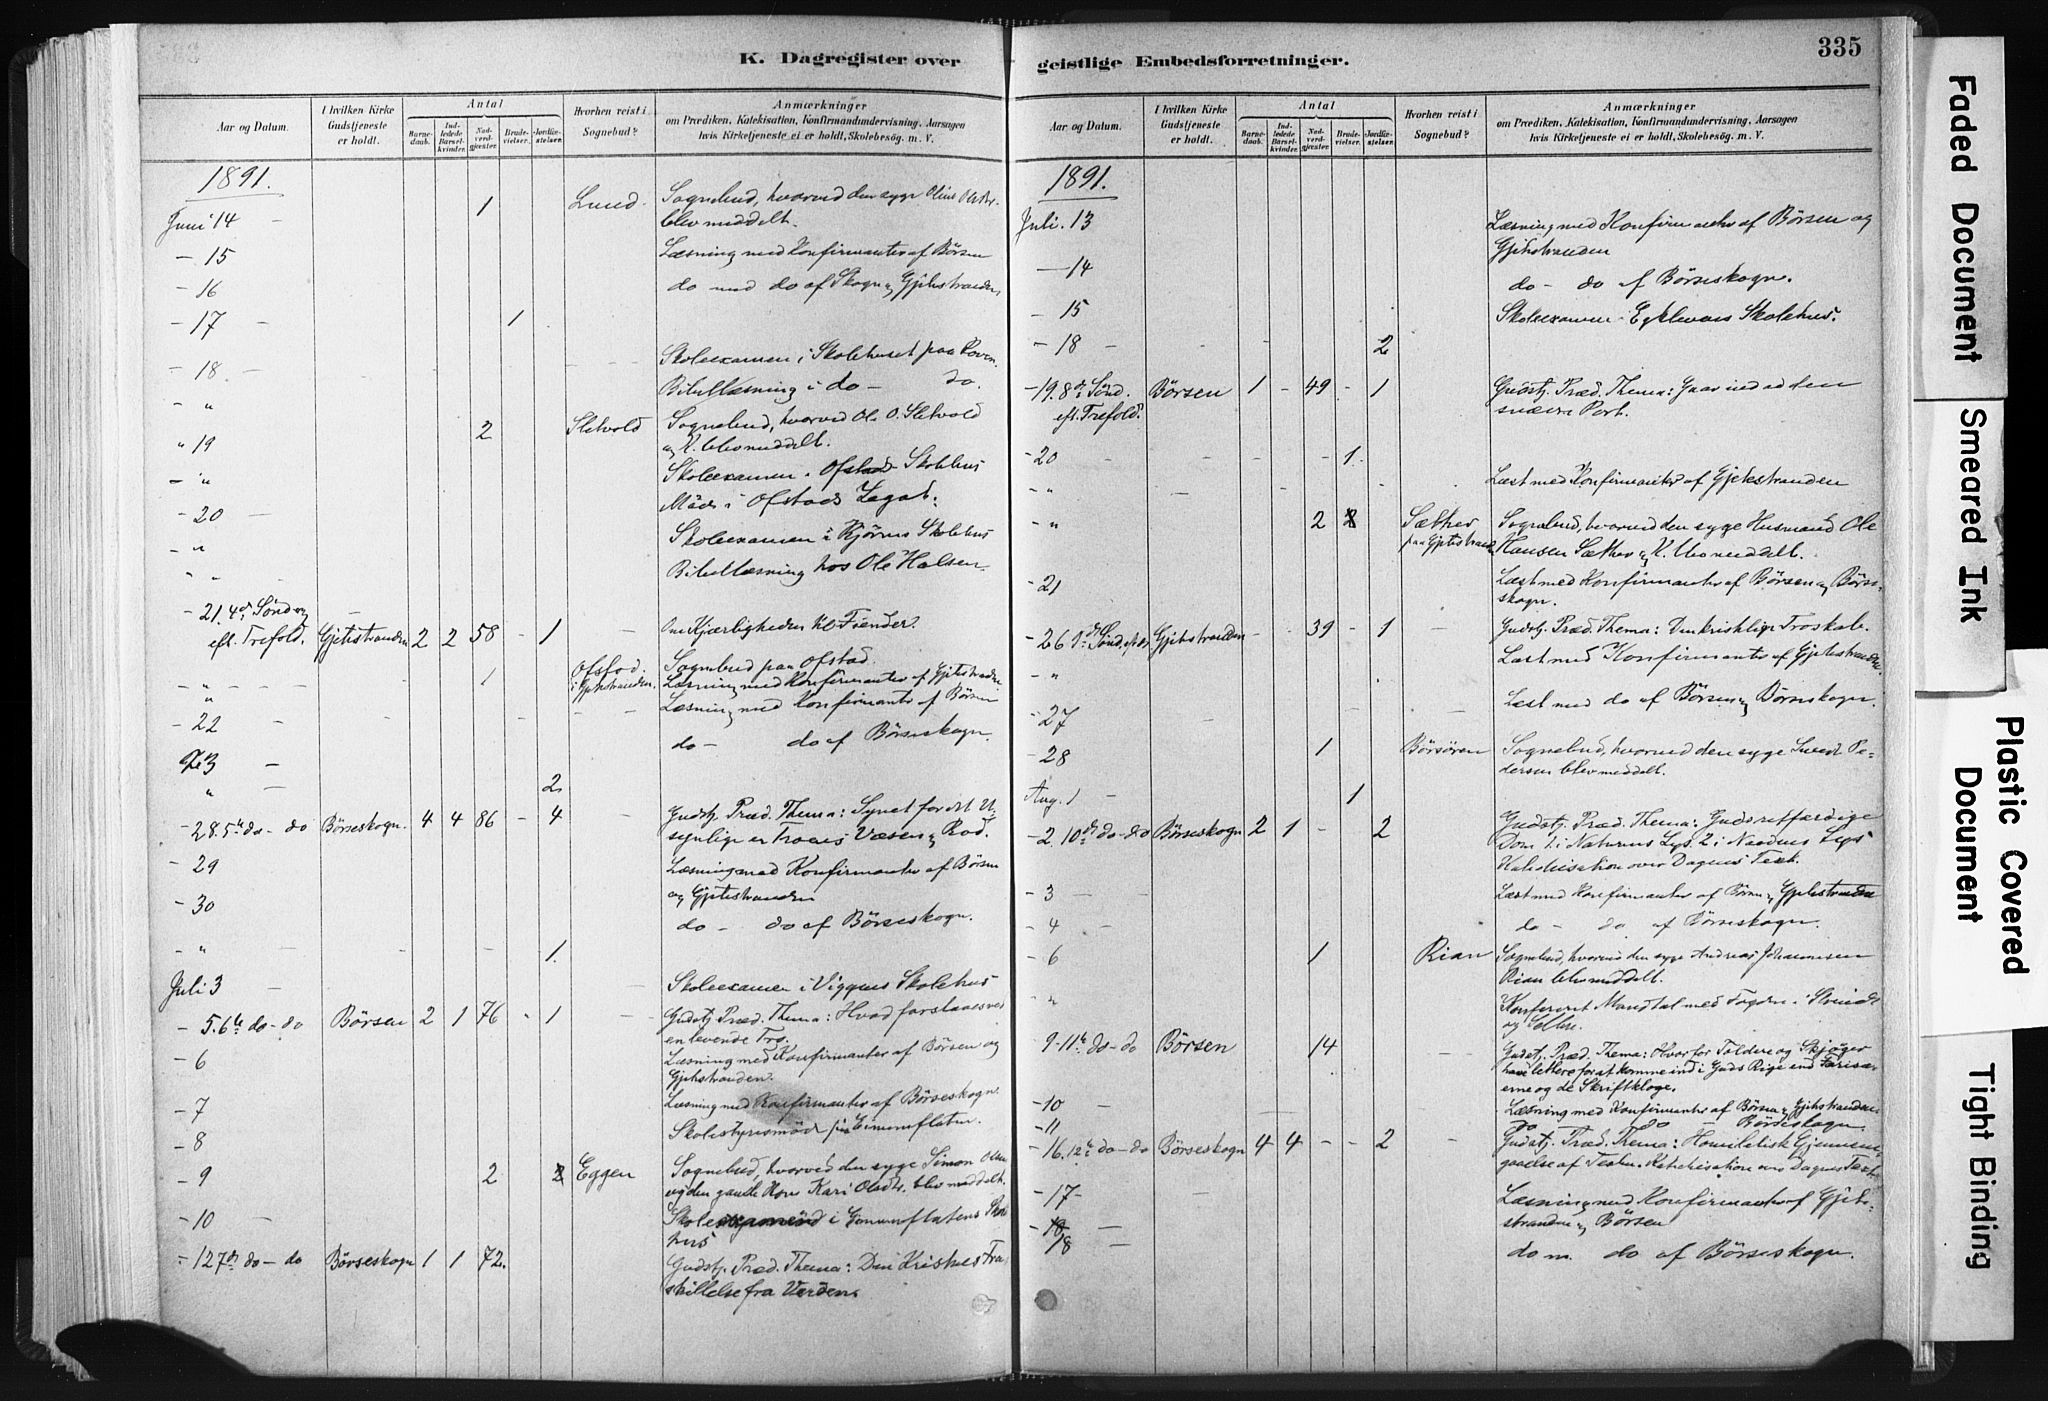 K. Dagregister over
Aar og Datum.
I hvilken Kirke Gudstjeneste er holdt.
Antal
Barnedaab.
Indledede Barselkvinder.
Nadverdgjæster.
Brudevielser.
Jordfæstelser.
Hvorhen reist i Sognebud?
Anmærkninger
om Prædiken, Katekisation, Konfirmandundervisning, Aarsagen
hvis Kirketjeneste ei er holdt, Skolebesög. m. V.
1891.
Juni 14 - 1 Lund. Sognebud, hvorved den syge Olius
blev meddelt.
- 15 Læsning med Konfirmanter af Börsen
- 16 do med do af Skogn og Gjetestranden
- 17 - 1
- 18 - Skoleexamen i Skolehuset paa
- " Bibellæsning i do - do.
" 19 2 Sletvold Sognebud, hvorved Ole O. Sletvold
og K. blev meddelt.
- " Skoleexamen i Ofstads Skolehus
- 20 - Möde i Ofstads Legat.
- " Skoleexamen i Kjörens Skolehus
- " - Bibellæsning hos Ole Halsen
- 21. 4de Sönd
eft. Trefold. Gjetestranden 2 2 58 - 1 - Om Kjærligheden til Fiender.
- " - - - 1 Ofstad. Sognebud paa Ofstad.
i Gjetestranden. Læsning med Konfirmanter af Gjetestranden
" Læsning med Konfirmanter af Börsen
- 22 - do - do af Börseskogn.
23 -
" - 2
- 28. 5te do - do Börseskogn. 4 4 86 - 4 Gudstj. Præd. Thema: Synet for det U-
synlige er Troens Væsen og Rod.
- 29 Læsning med Konfirmanter af Börsen
og Gjetestranden
- 30 do - do af Börseskogn.
- " 1.
Juli 3 - Skoleexamen i Viggens Skolehus
- 5. 6te do - do Börsen 2 1 76 - 1 - Gudstj. Præd. Thema: Hvad forstaaes ved
en levende Tro.
- 6 Læsning med Konfirmanter af Börsen og
Gjetestranden.
- 7 Læsning med Konfirmanter af Börseskogn.
- 8 Skolestyremöde paa
- 9 2 Eggen Sognebud, hvorved den syge Simon
og den gamle Kone Kari blev meddelt.
- 10 - i Skole-
hus
- 12 7de do - do Börseskogn 1 1 72. Gudstj. Præd. Thema: Den Kristnes
skillelse fra Verden.
geistlige Embedsforretninger.
335
Aar og Datum.
I hvilken Kirke Gudstjeneste er holdt.
Antal
Barnedaab.
Indledede Barselkvinder.
Nadverdgjæster.
Brudevielser.
Jordfæstelser.
Hvorhen reist i Sognebud?
Anmærkninger
om Prædiken, Katekisation, Konfirmandundervisning, Aarsagen
hvis Kirketjeneste ei er holdt, Skolebesög. m. V.
1891.
Juli. 13 Læsning med Konfirmanter af Börsen og
Gjetestranden
- 14 do - do af Börseskogn.
- 15 Skoleexamen i Skolehus.
- 18 - 2
- 19. 8de Sönd. Börsen 1 - 49 - 1 Gudstj. Præd. Thema: Gaar ind ad den
eft. Trefold. snævre Port.
- 20 - 1.
- " Læst med Konfirmanter af Gjetestranden
- " 2 Sæther Sognebud, hvorved den syge Husmand Ole
paa Gjetestrand Hansen Sæther og K. blev meddelt.
- 21 Læst med Konfirmanter af Börsen og Börse-
skogn.
- 26 9de Sönd. Gjetestranden - - 39 - 1 - Gudstj. Præd. Thema: Den kristelige Troskab.
- " Læst med Konfirmanter af Gjetestranden
- 27 Læst med do af Börsen og Börseskogn.
- 28 1 Börsören Sognebud, hvorved den syge Pe-
dersen blev meddelt.
Aug. 1 - 1
- 2. 10de do - do Börseskogn 2 1 - 2 Gudstj. Præd. Thema: Guds retfærdige
Dom 1. i Naturens Lys. 2. i Naadens Lys
Katekisation over Dagens Text.
- 3 - - Læst med Konfirmanter af Börsen og Gjetestranden
- 4 - do - do af Börseskogn.
- 6 1 Rian Sognebud, hvorved den syge Andreas Johannesen
Rian blev meddelt.
" Konfereret Mandtal med Fogden i
og
9 - 11te do - do Börsen 14 - Gudstj. Præd. Thema: Hvorfor Toldere og Skjöger
have lettere for at komme ind i Guds Rige end Farisæ-
erne og de Skriftkloge.
- 10 - Læsning med Konfirmanter af Börsen og Gjetestranden
- 11 do - do - Börseskogn.
- 16. 12te do - do Börseskogn 4 4 - - 2 - Gudstj. Præd. Thema: Homiletisk Gjennem-
gaaelse af Texten. Katekisation over Dagens Text
- 17 - Læsning med Konfirmanter af Gjete-
stranden og Börsen
- 18 - do m. do af Börseskogn.
Faded Document
Smeared Ink
Plastic Covered Document
Tight Binding